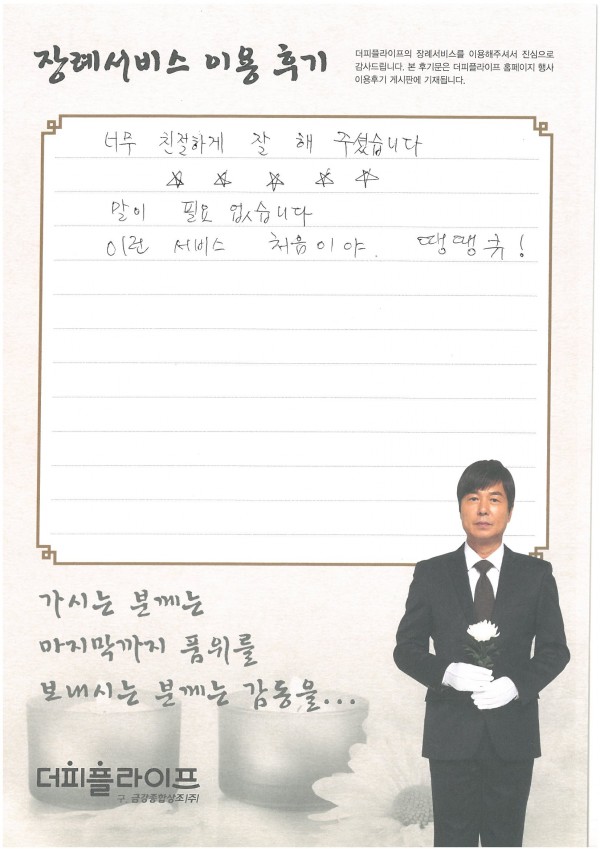 장례서비스 이용 후기
더피플라이프의 장례서비스를 이용해주셔서 진심으로
감사드립니다. 본 후기문은 더피플라이프 홈페이지 행사
이용후기 게시판에 기재됩니다.
너무 친절하게 잘 해 주셨습니다
☆ ☆ ☆ ☆ ☆
말이 필요 없습니다
이런 서비스 처음이야. 땡땡큐!
가시는 분께는
마지막까지 품위를
보내시는 분께는 감동을...
더피플라이프
구. 금강종합상조(주)